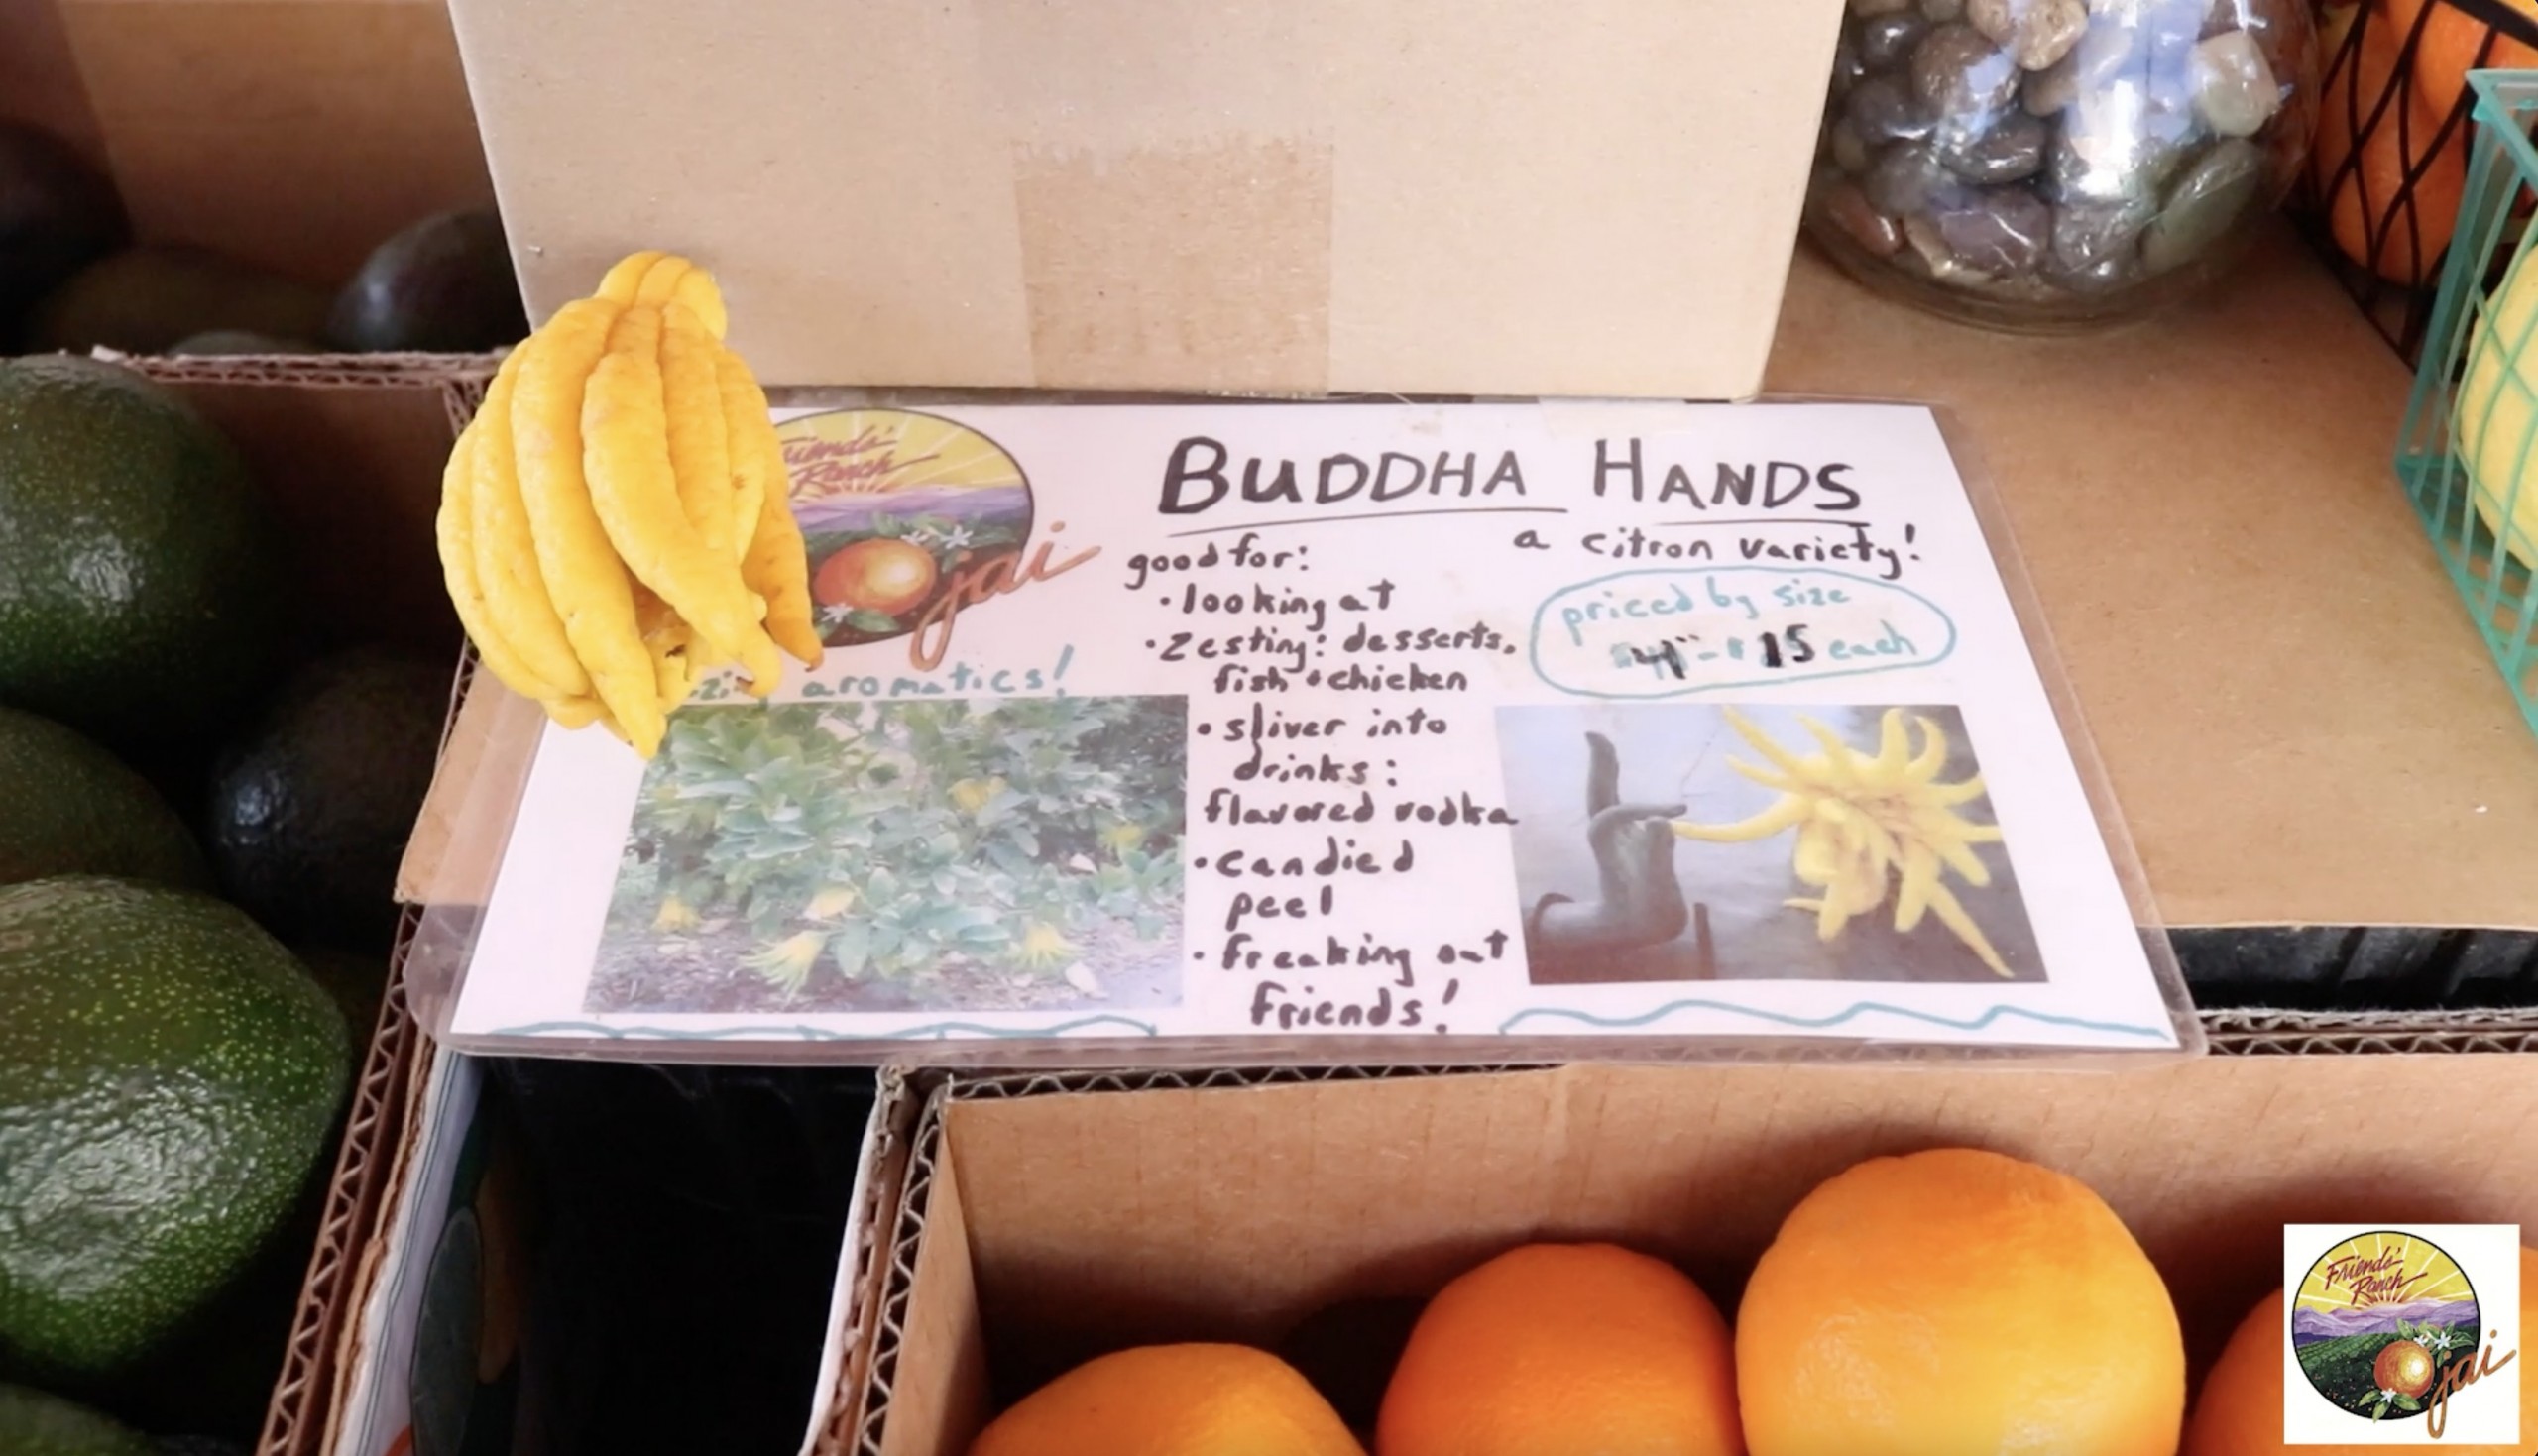 Friends'
Ranch
Ojai
aromatics!
BUDDHA HANDS
a citron variety!
good for:
• looking at
• Zesting: desserts,
fish + chicken
• sliver into
drinks:
flavored vodka
• Candied
peel
• Freaking out
Friends!
priced by size
4 - $15 each
Friends'
Ranch
Ojai